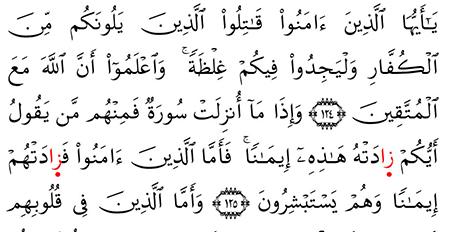 يَـٰٓأَيُّهَا ٱلَّذِينَ ءَامَنُوا۟ قَـٰتِلُوا۟ ٱلَّذِينَ يَلُونَكُم مِّنَ
ٱلْكُفَّارِ وَلْيَجِدُوا۟ فِيكُمْ غِلْظَةً ۚ وَٱعْلَمُوٓا۟ أَنَّ ٱللَّهَ مَعَ
ٱلْمُتَّقِينَ ﴿١٢٤﴾ وَإِذَا مَآ أُنزِلَتْ سُورَةٌ فَمِنْهُم مَّن يَقُولُ
أَيُّكُمْ زادَتْهُ هَـٰذِهِۦٓ إِيمَـٰنًا ۚ فَأَمَّا ٱلَّذِينَ ءَامَنُوا۟ فَزادَتْهُمْ
إِيمَـٰنًا وَهُمْ يَسْتَبْشِرُونَ ﴿١٢٥﴾ وَأَمَّا ٱلَّذِينَ فِى قُلُوبِهِم